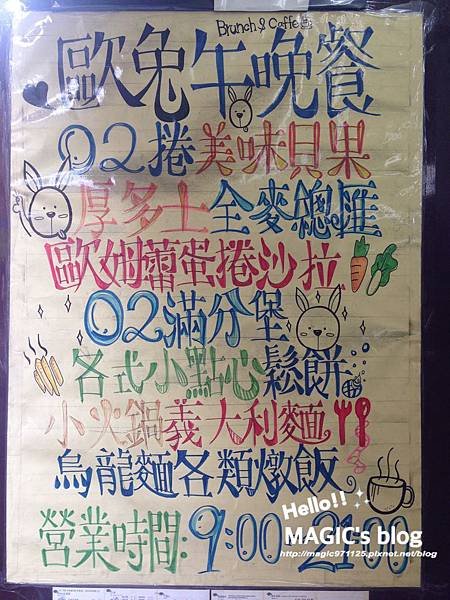 Brunch & Caffe
歐兔午晚餐
02捲美味貝果
厚多士全麥總匯
歐姆蕾蛋捲沙拉
02滿分堡
各式小點心鬆餅
小火鍋義大利麵
烏龍麵各類燉飯
營業時間:9:00-21:00
Hello!!
MAGIC's blog
http://magic971125.pixnet.net/blog